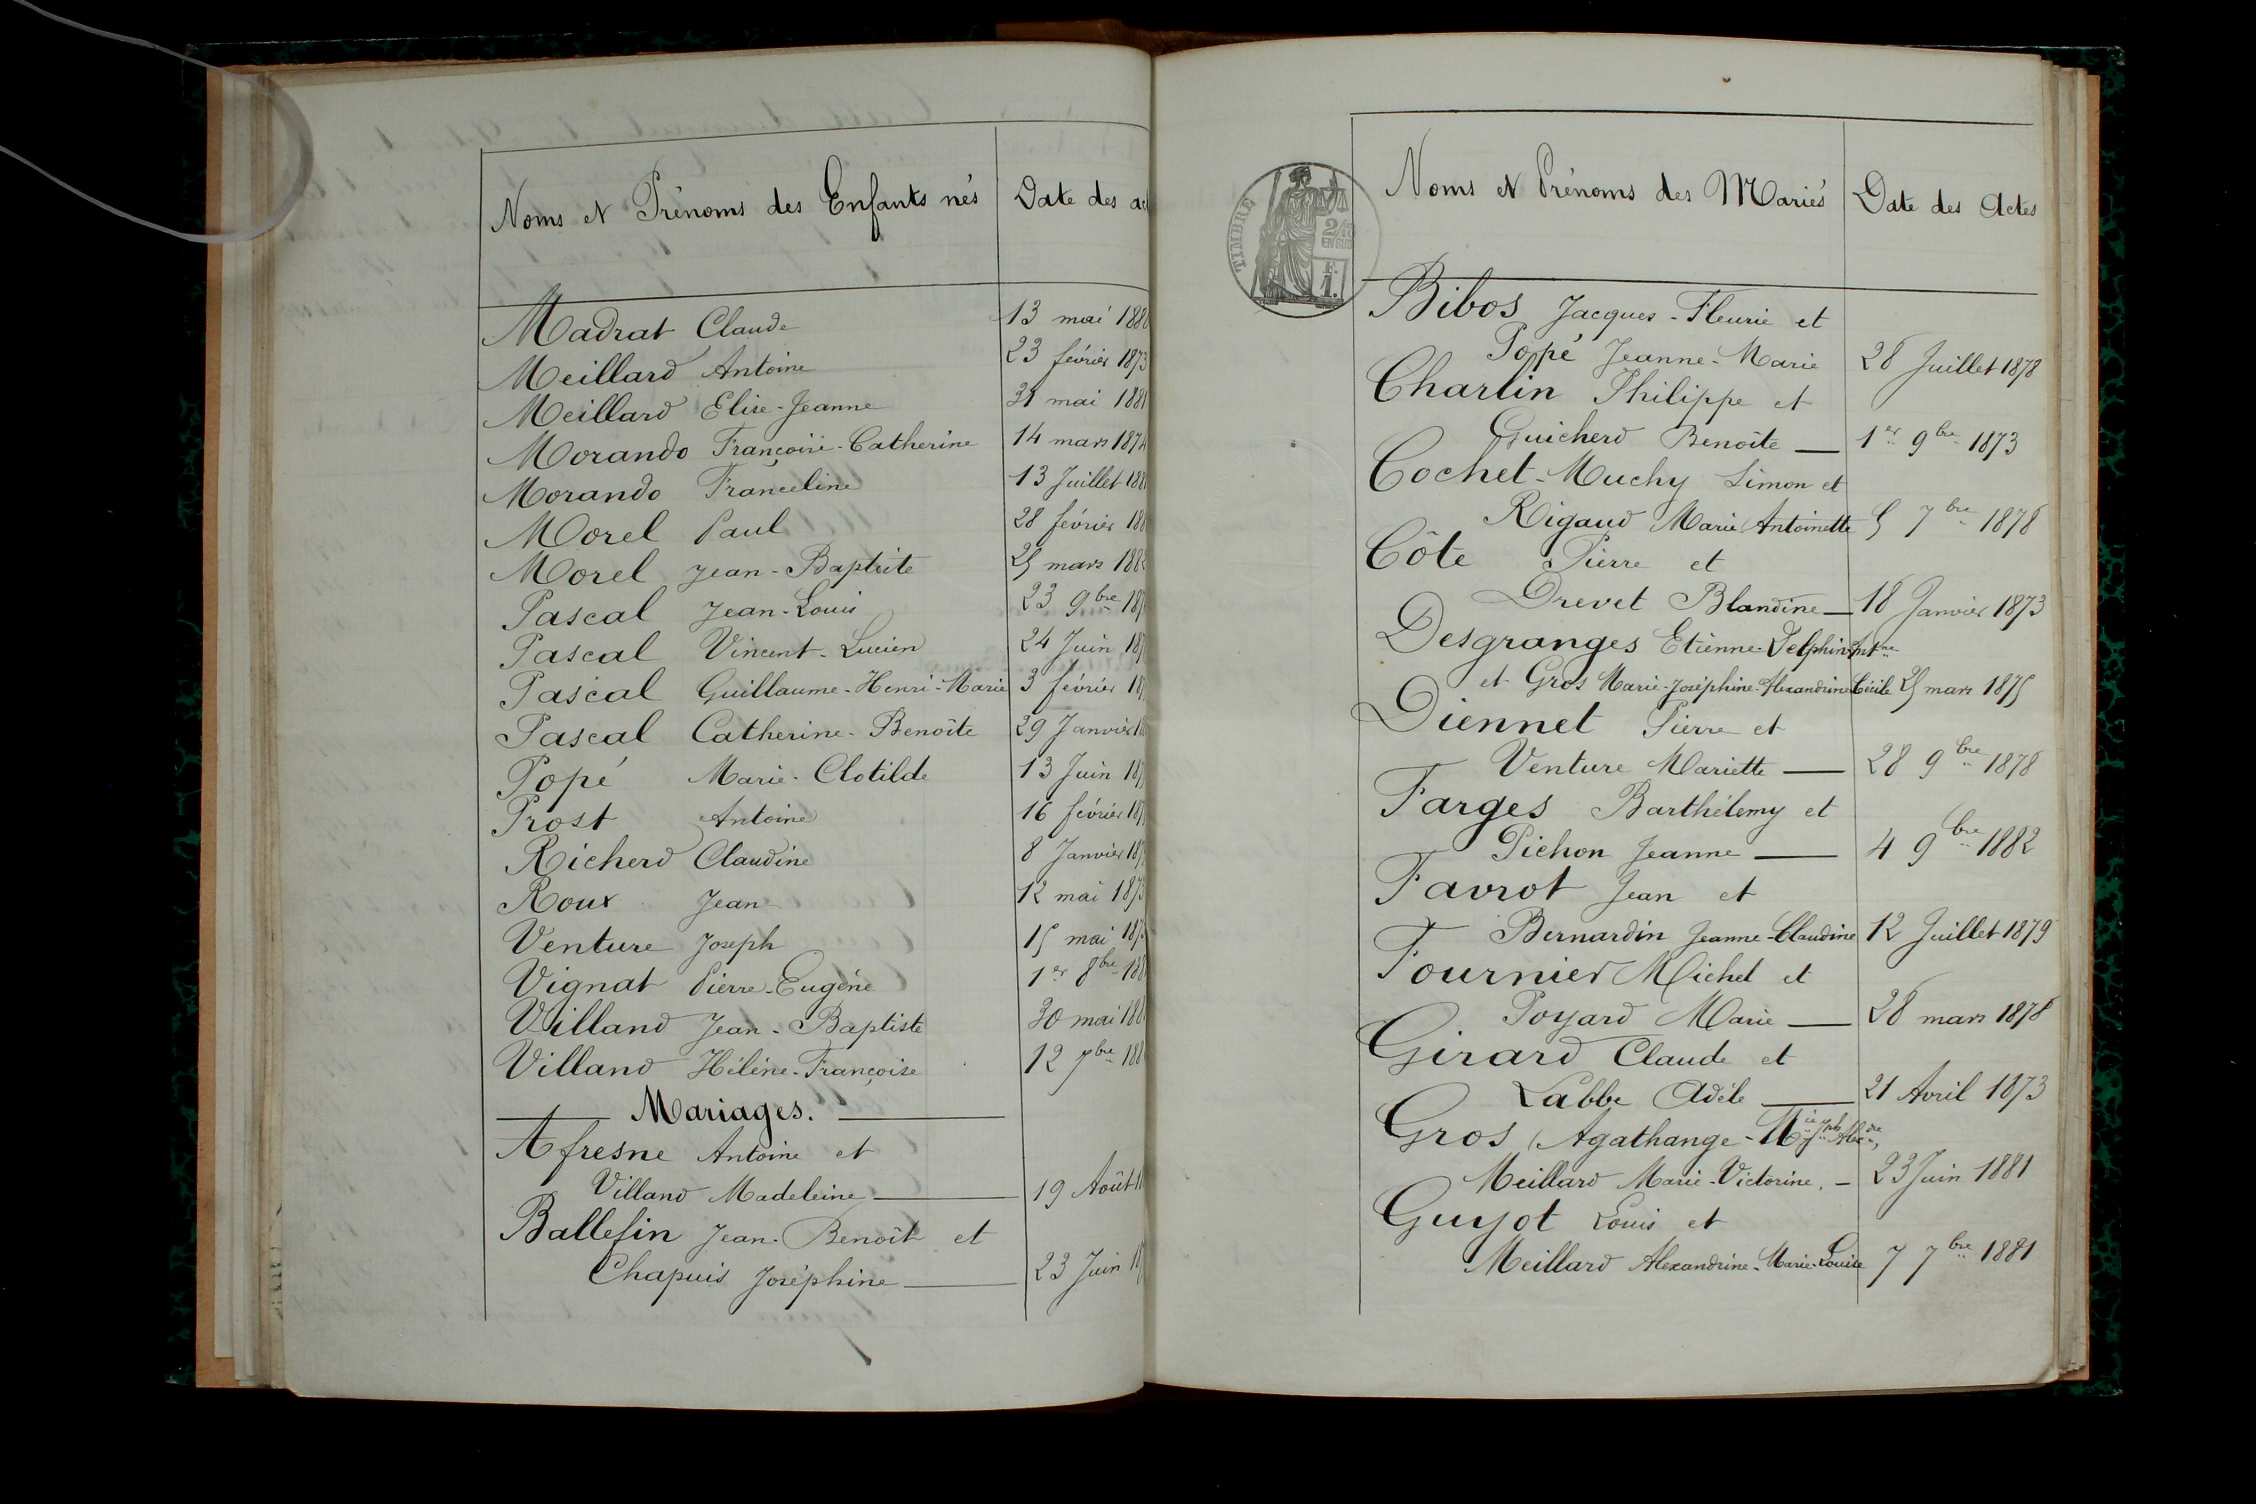 Noms et Prénoms des Enfants nés Date des ac
Madrat Claude 13 mai 188
Meillard Antoine 23 février 1873
Meillard Elise-Jeanne 31 mai 1881
Morando Françoise-Catherine 14 mars 1874
Morando Franceline 13 Juillet 188
Morel Paul 28 février 18
Morel Jean-Baptiste 25 mars 188
Pascal Jean-Louis 23 9bre 187
Pascal Vincent-Lucien 24 Juin 187
Pascal Guillaume-Henri-Marie 3 février 18
Pascal Catherine-Benoite 29 Janvier
Popé Marie-Clotilde 13 Juin 187
Prost Antoine 16 février 187
Richerd Claudine 8 Janvier 187
Roux Jean 12 mai 187
Venture Joseph 15 mai 187
Vignat Pierre-Eugène 1er 8bre 188
Villand Jean-Baptiste 30 mai 188
Villand Hélène-Françoise 12 7bre 188
Mariages.
Afresne Antoine et
Villand Madeleine 19 Août
Ballefin Jean-Benoît et
Chapuis Joséphine 23 Juin 18
TIMBRE
2/10
EN SUS
F.
1.
Noms et Prénoms des Mariés Date des Actes
Bibos Jacques-Fleurie et
Popé Jeanne-Marie 28 Juillet 1878
Charlin Philippe et
Guicherd Benoîte 1er 9bre 1873
Cochet-Muchy Simon et
Rigaud Marie Antoinette 5 7bre 1878
Côte Pierre et
Drevet Blandine 18 Janvier 1873
Desgranges Etienne-Delphin-Antne
et Gros Marie-Joséphine-Alexandrine Cécile 25 mars 1875
Diennet Pierre et
Venture Mariette 28 9bre 1878
Farges Barthélemy et
Pichon Jeanne 4 9bre 1882
Favrot Jean et
Bernardin Jeanne-Claudine 12 Juillet 1879
Fournier Michel et
Poyard Marie 28 mars 1878
Girard Claude et
Labbe Adèle 21 Avril 1873
Gros Agathange-Mie Jph Alexdre
Meillard Marie-Victorine. 23 Juin 1881
Guyot Louis et
Meillard Alexandrine-Marie-Louise 7 7bre 1881